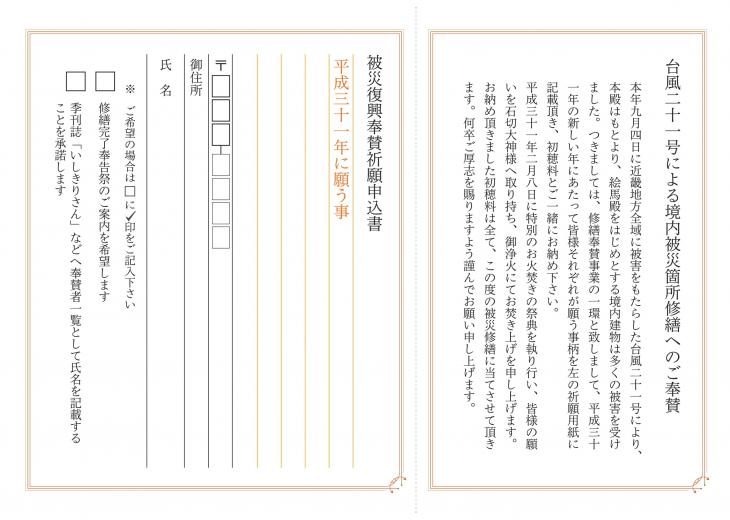 台風二十一号による境内被災箇所修繕へのご奉賛
本年九月四日に近畿地方全域に被害をもたらした台風二十一号により、
本殿はもとより、絵馬殿をはじめとする境内建物は多くの被害を受け
ました。つきましては、修繕奉賛事業の一環と致しまして、平成三十
一年の新しい年にあたって皆様それぞれが願う事柄を左の祈願用紙に
記載頂き、初穂料とご一緒にお納め下さい。
平成三十一年二月八日に特別のお火焚きの祭典を執り行い、皆様の願
いを石切大神様へ取り持ち、御浄火にてお焚き上げを申し上げます。
お納め頂きました初穂料は全て、この度の被災修繕に当てさせて頂き
ます。何卒ご厚志を賜りますよう謹んでお願い申し上げます。
被災復興奉賛祈願申込書
平成三十一年に願う事
〒
御住所
氏 名
※ ご希望の場合は□に✓印をご記入下さい
□ 修繕完了奉告祭のご案内を希望します
□ 季刊誌「いしきりさん」などへ奉賛者一覧として氏名を記載する
ことを承諾します